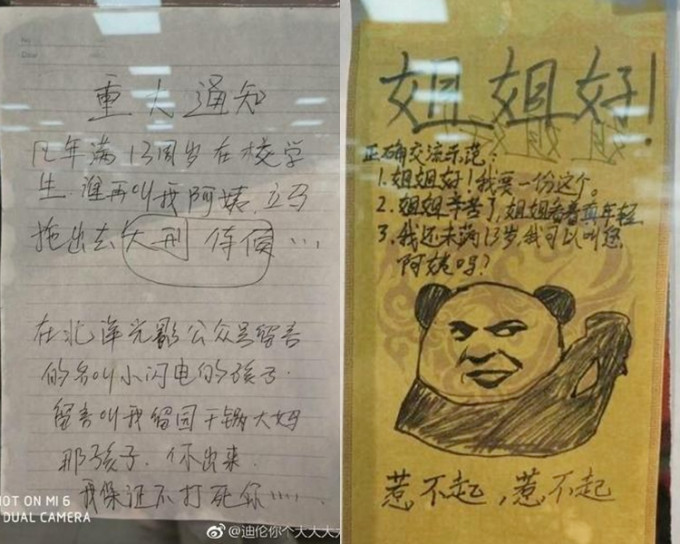 重大通知
凡年满13周岁在校学
生.谁再叫我阿姨.立马
拖出去大刑 侍候…
在北洋光影公众号留言
的名叫小闪电的孩子.
留言叫我留园干锅大妈
那孩子.你出来.
我保证不打死你……
SHOT ON MI 6
DUAL CAMERA
@迪伦你个大大大
姐姐好!
正确交流示范:
1.姐姐好!我要一份这个。
2.姐姐辛苦了,姐姐看着真年轻
3.我还未满13岁,我可以叫您
阿姨吗?
惹不起,惹不起